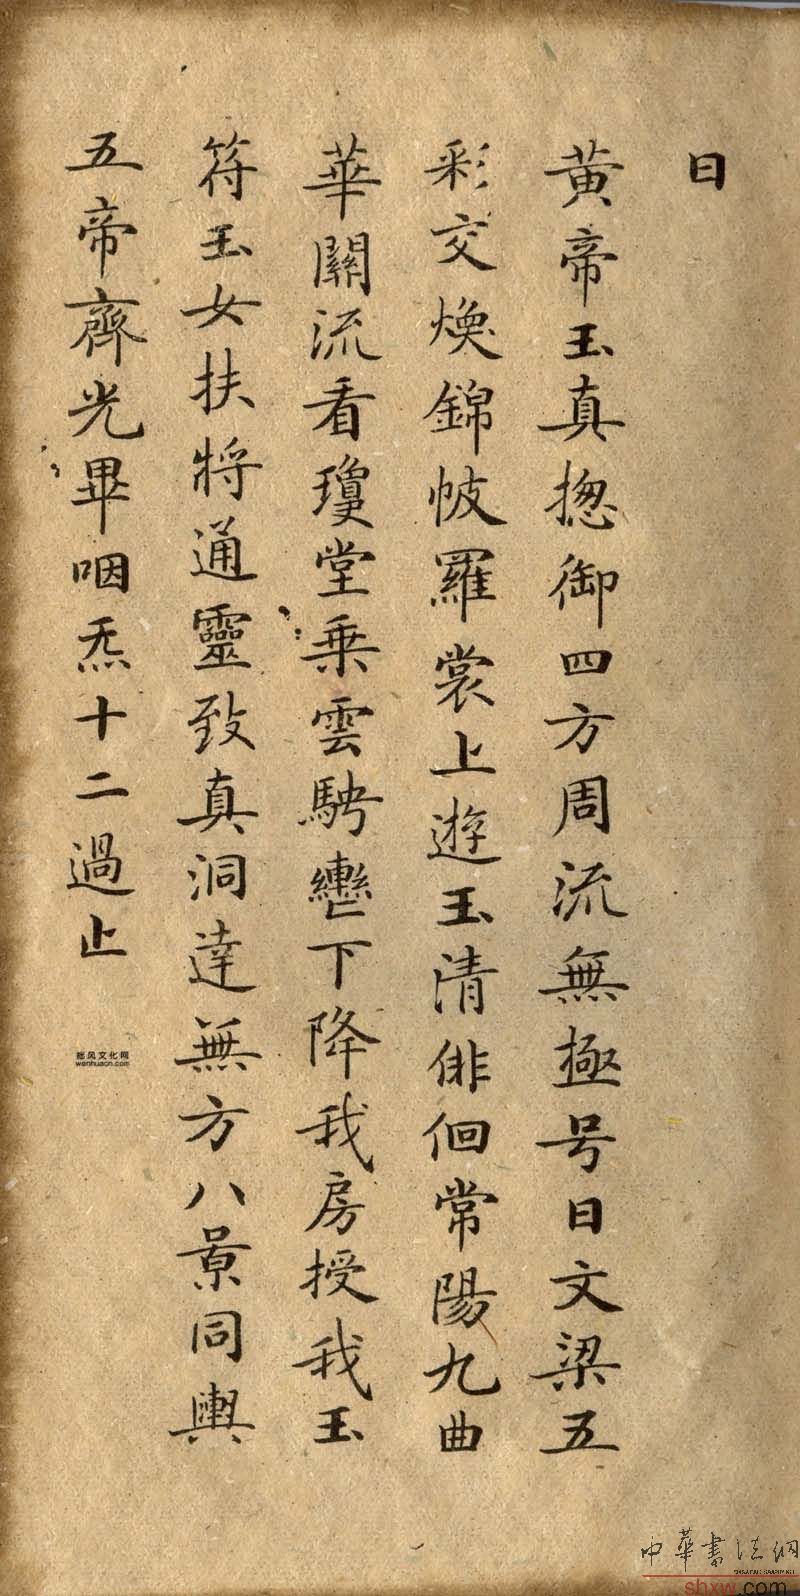 曰
黃帝玉真揔御四方周流無極号曰文梁五
彩交煥錦帔羅裳上遊玉清俳佪常陽九曲
華關流看瓊堂乗雲騁轡下降我房授我玉
符玉女扶將通靈致真洞達無方八景同輿
五帝齊光畢咽炁十二過止
拙风文化网
wenhuacn.com
中華書法網
shxw.com